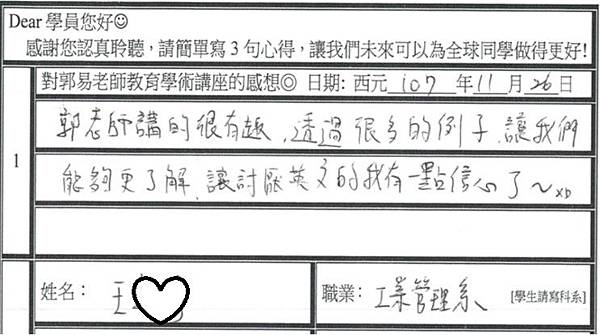 Dear 學員您好☺
感謝您認真聆聽，請簡單寫 3 句心得，讓我們未來可以為全球同學做得更好!
對郭易老師教育學術講座的感想◎ 日期: 西元 107 年 11 月 26 日
1
郭老師講的很有趣，透過很多的例子，讓我們
能夠更了解，讓討厭英文的我有一點信心了～XD
姓名： 王
職業： 工業管理系 [學生請寫科系]